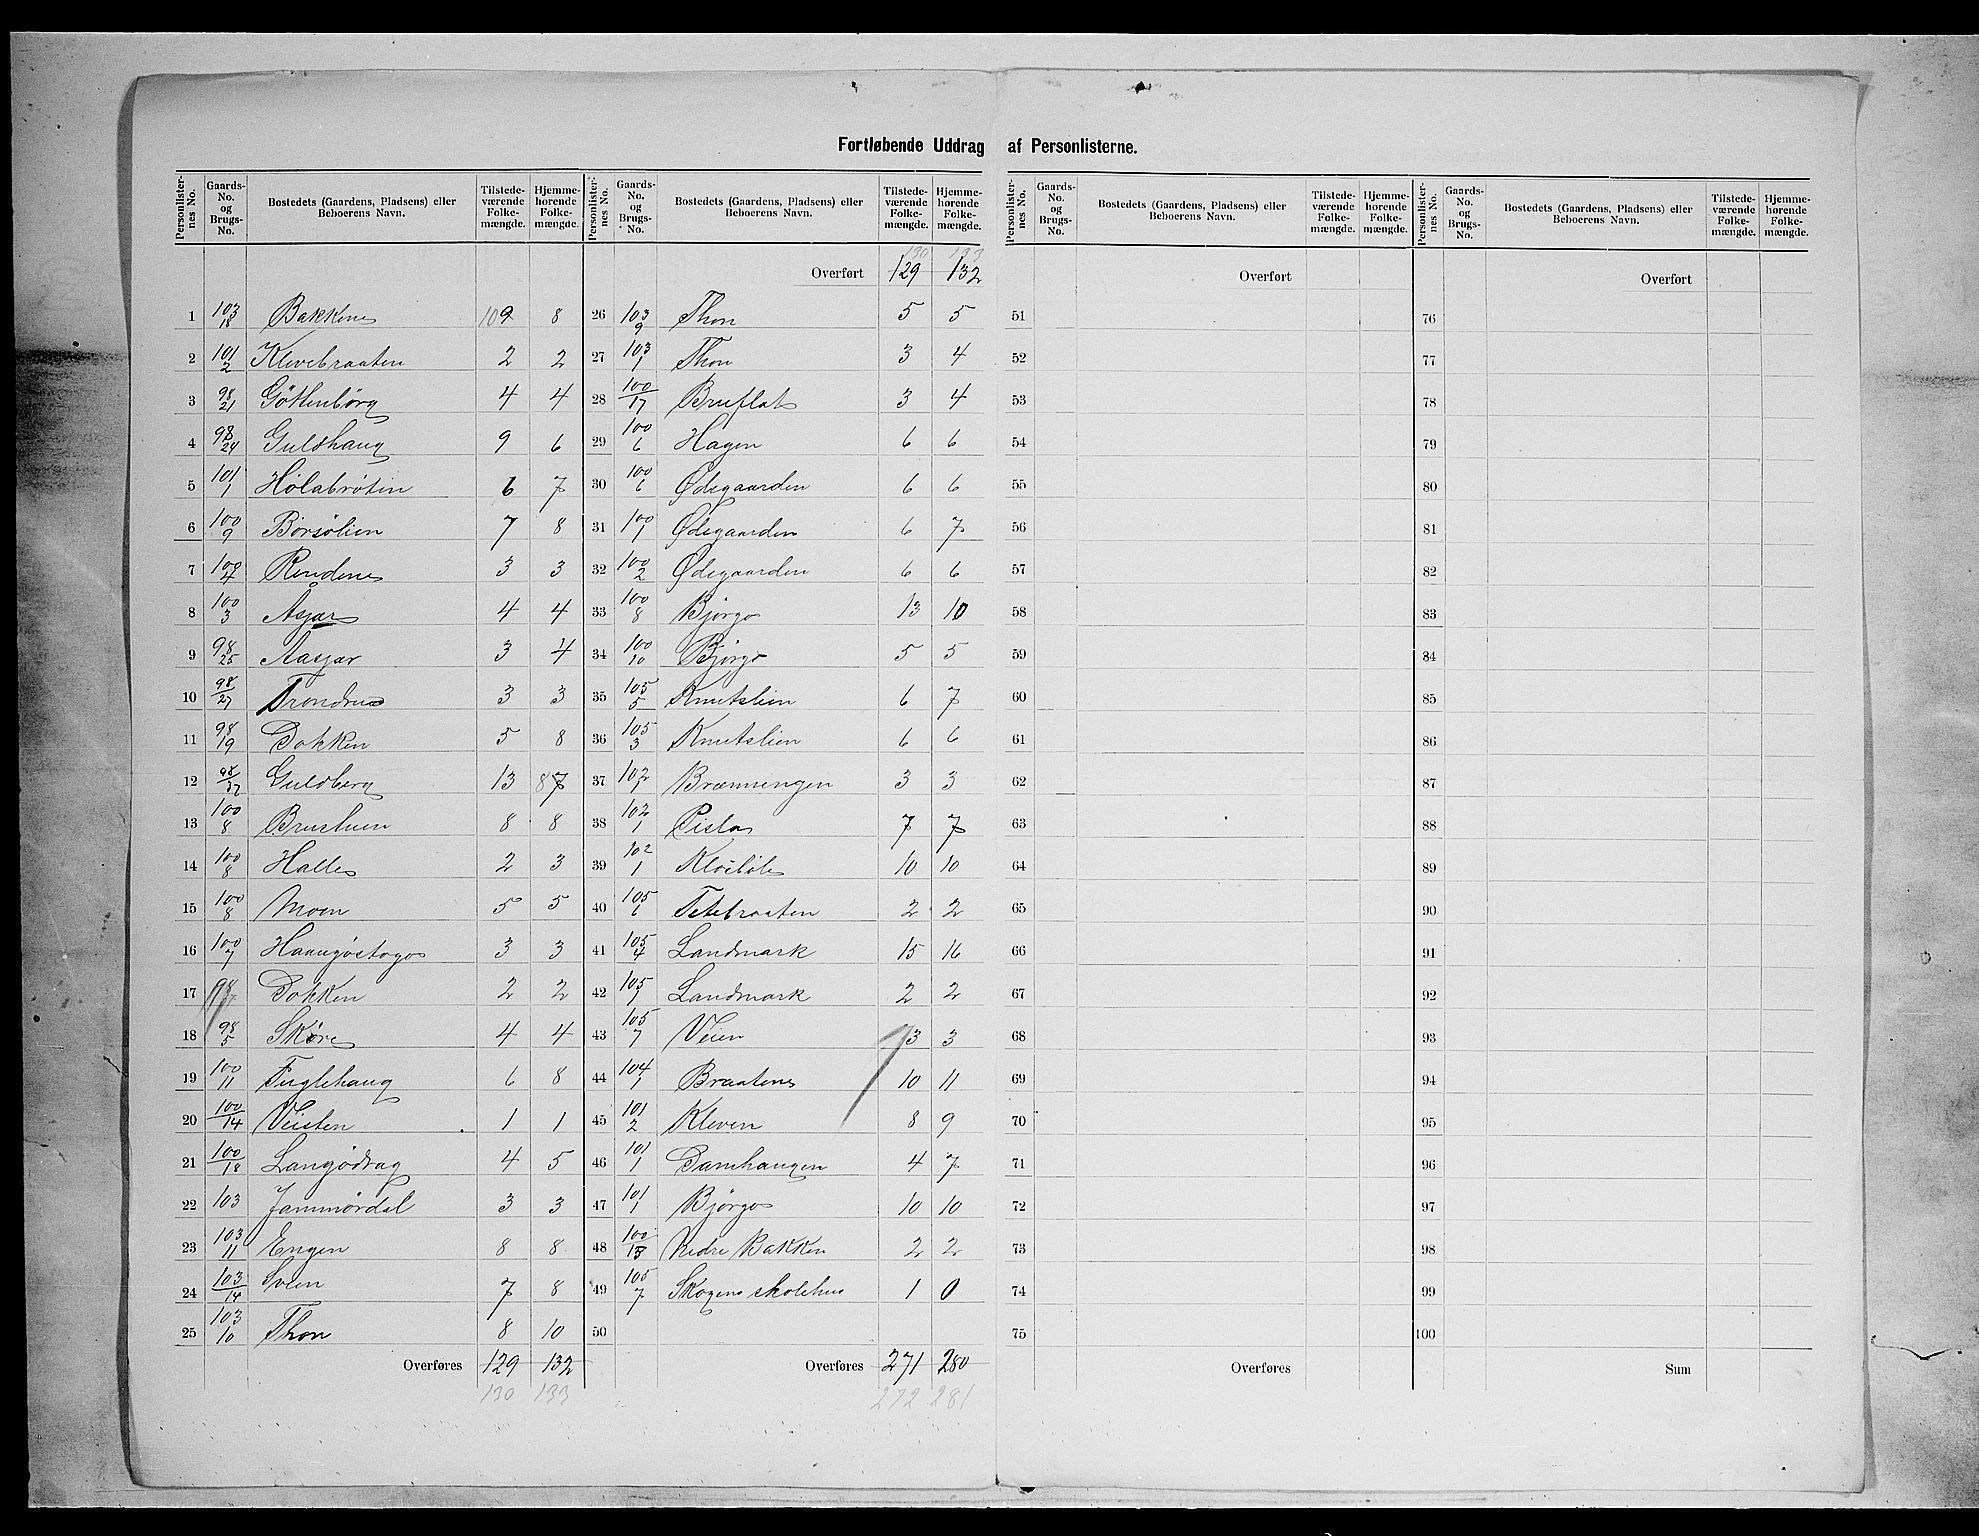 Fortløbende Uddrag af Personlisterne.
Personlister-nes No. | Gaards-No. og Brugs-No. | Bostedets (Gaardens, Pladsens) eller Beboerens Navn. | Tilstede-værende Folke-mængde. | Hjemme-hørende Folke-mængde.
1 103/18 Bakkene 109 8
2 101/2 Klevebraaten 2 2
3 98/21 Göttenbörg 4 4
4 98/24 Guldhaug 9 6
5 101/1 Hölabrötin 6 7
6 100/9 Börsölien 7 8
7 100/4 Rendene 3 3
8 100/3 Asjar 4 4
9 98/25 Aasjar 3 4
10 98/27 3 3
11 98/19 Dokken 5 8
12 Guldberg 13 87
13 100/8 Bruslien 8 8
14 100/8 Halle 2 3
15 100/8 Moen 5 5
16 100/7 3 3
17 Dokken 2 2
18 98/5 Sköre 4 4
19 100/11 Fuglehaug 6 8
20 100/14 Veisten 1 1
21 100/18 Langödrag 4 5
22 103 Jammördal 3 3
23 103/11 Engen 8 8
24 103/14 Sveen 7 8
25 103/10 Thon 8 10
Overføres 129 132
130 133
Personlister-nes No. | Gaards-No. og Brugs-No. | Bostedets (Gaardens, Pladsens) eller Beboerens Navn. | Tilstede-værende Folke-mængde. | Hjemme-hørende Folke-mængde.
130 133
Overført 129 132
26 103/9 Thon 5 5
27 103/1 Thon 3 4
28 100/17 Bruflat 3 4
29 100/6 Hagen 6 6
30 100/6 Ødegaarden 6 6
31 100/1 Ødegaarden 6 7
32 100/2 Ødegaarden 6 6
33 100/8 Björgo 13 10
34 100/10 Björgo 5 5
35 105/5 Knutslien 6 7
36 105/3 Knutslien 6 6
37 102/1 Brænningen 3 3
38 102/1 Pisla 7 7
39 102/1 Klöiböle 10 10
40 105/6 Tetebraaten 2 2
41 105/4 Landmark 15 16
42 105/1 Landmark 2 2
43 105/7 Veien 3 3
44 104/1 Braatene 10 11
45 101/2 Kleven 8 9
46 101/1 Damhaugen 4 7
47 101/1 Björgo 10 10
48 100/13 Nedre Bakken 2 2
49 105/7 Skogens skolehus 1 0
50
Overføres 271 280
272 281
Personlister-nes No. | Gaards-No. og Brugs-No. | Bostedets (Gaardens, Pladsens) eller Beboerens Navn. | Tilstede-værende Folke-mængde. | Hjemme-hørende Folke-mængde.
Overført
51
52
53
54
55
56
57
58
59
60
61
62
63
64
65
66
67
68
69
70
71
72
73
74
75
Overføres
Personlister-nes No. | Gaards-No. og Brugs-No. | Bostedets (Gaardens, Pladsens) eller Beboerens Navn. | Tilstede-værende Folke-mængde. | Hjemme-hørende Folke-mængde.
Overført
76
77
78
79
80
81
82
83
84
85
86
87
88
89
90
91
92
93
94
95
96
97
98
99
100
Sum